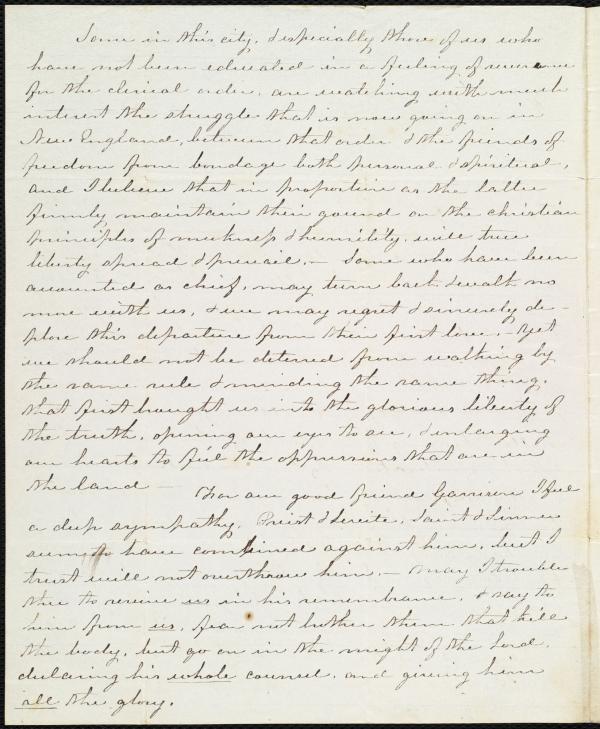 Some in this city, & especially those of us who
have not been educated in a feeling of reverence
for the clerical order, are watching with much
interest the struggle that is now going on in
New England, between that order & the friends of
freedom from bondage both personal & spiritual,
and I believe that in proportion as the latter
firmly maintain their gound on the christian
principles of meekness & humility, will true
liberty spread & prevail.– Some who have been
accounted as chief, may turn back & walk no
more with us, & we may regret & sincerely de-
plore this departure from their first love,– yet
we should not be deterred from walking by
the same rule & minding the same thing,
that first bought us into the glorious liberty of
the truth, opening our eyes to see, & enlarging
our hearts to feel the oppressions that are in
the land –
For our good friend Garrison I feel
a deep sympathy. Priest & Levite, Saint & Sinner
seem to have combined against him, but I
trust will not overthrow him.– May I trouble
thee to revive us in his remembrance, & say to
him from us, fear not brother them that kill
the body, but go on in the might of the Lord,
declaring his whole counsel, and giving him
all the glory.